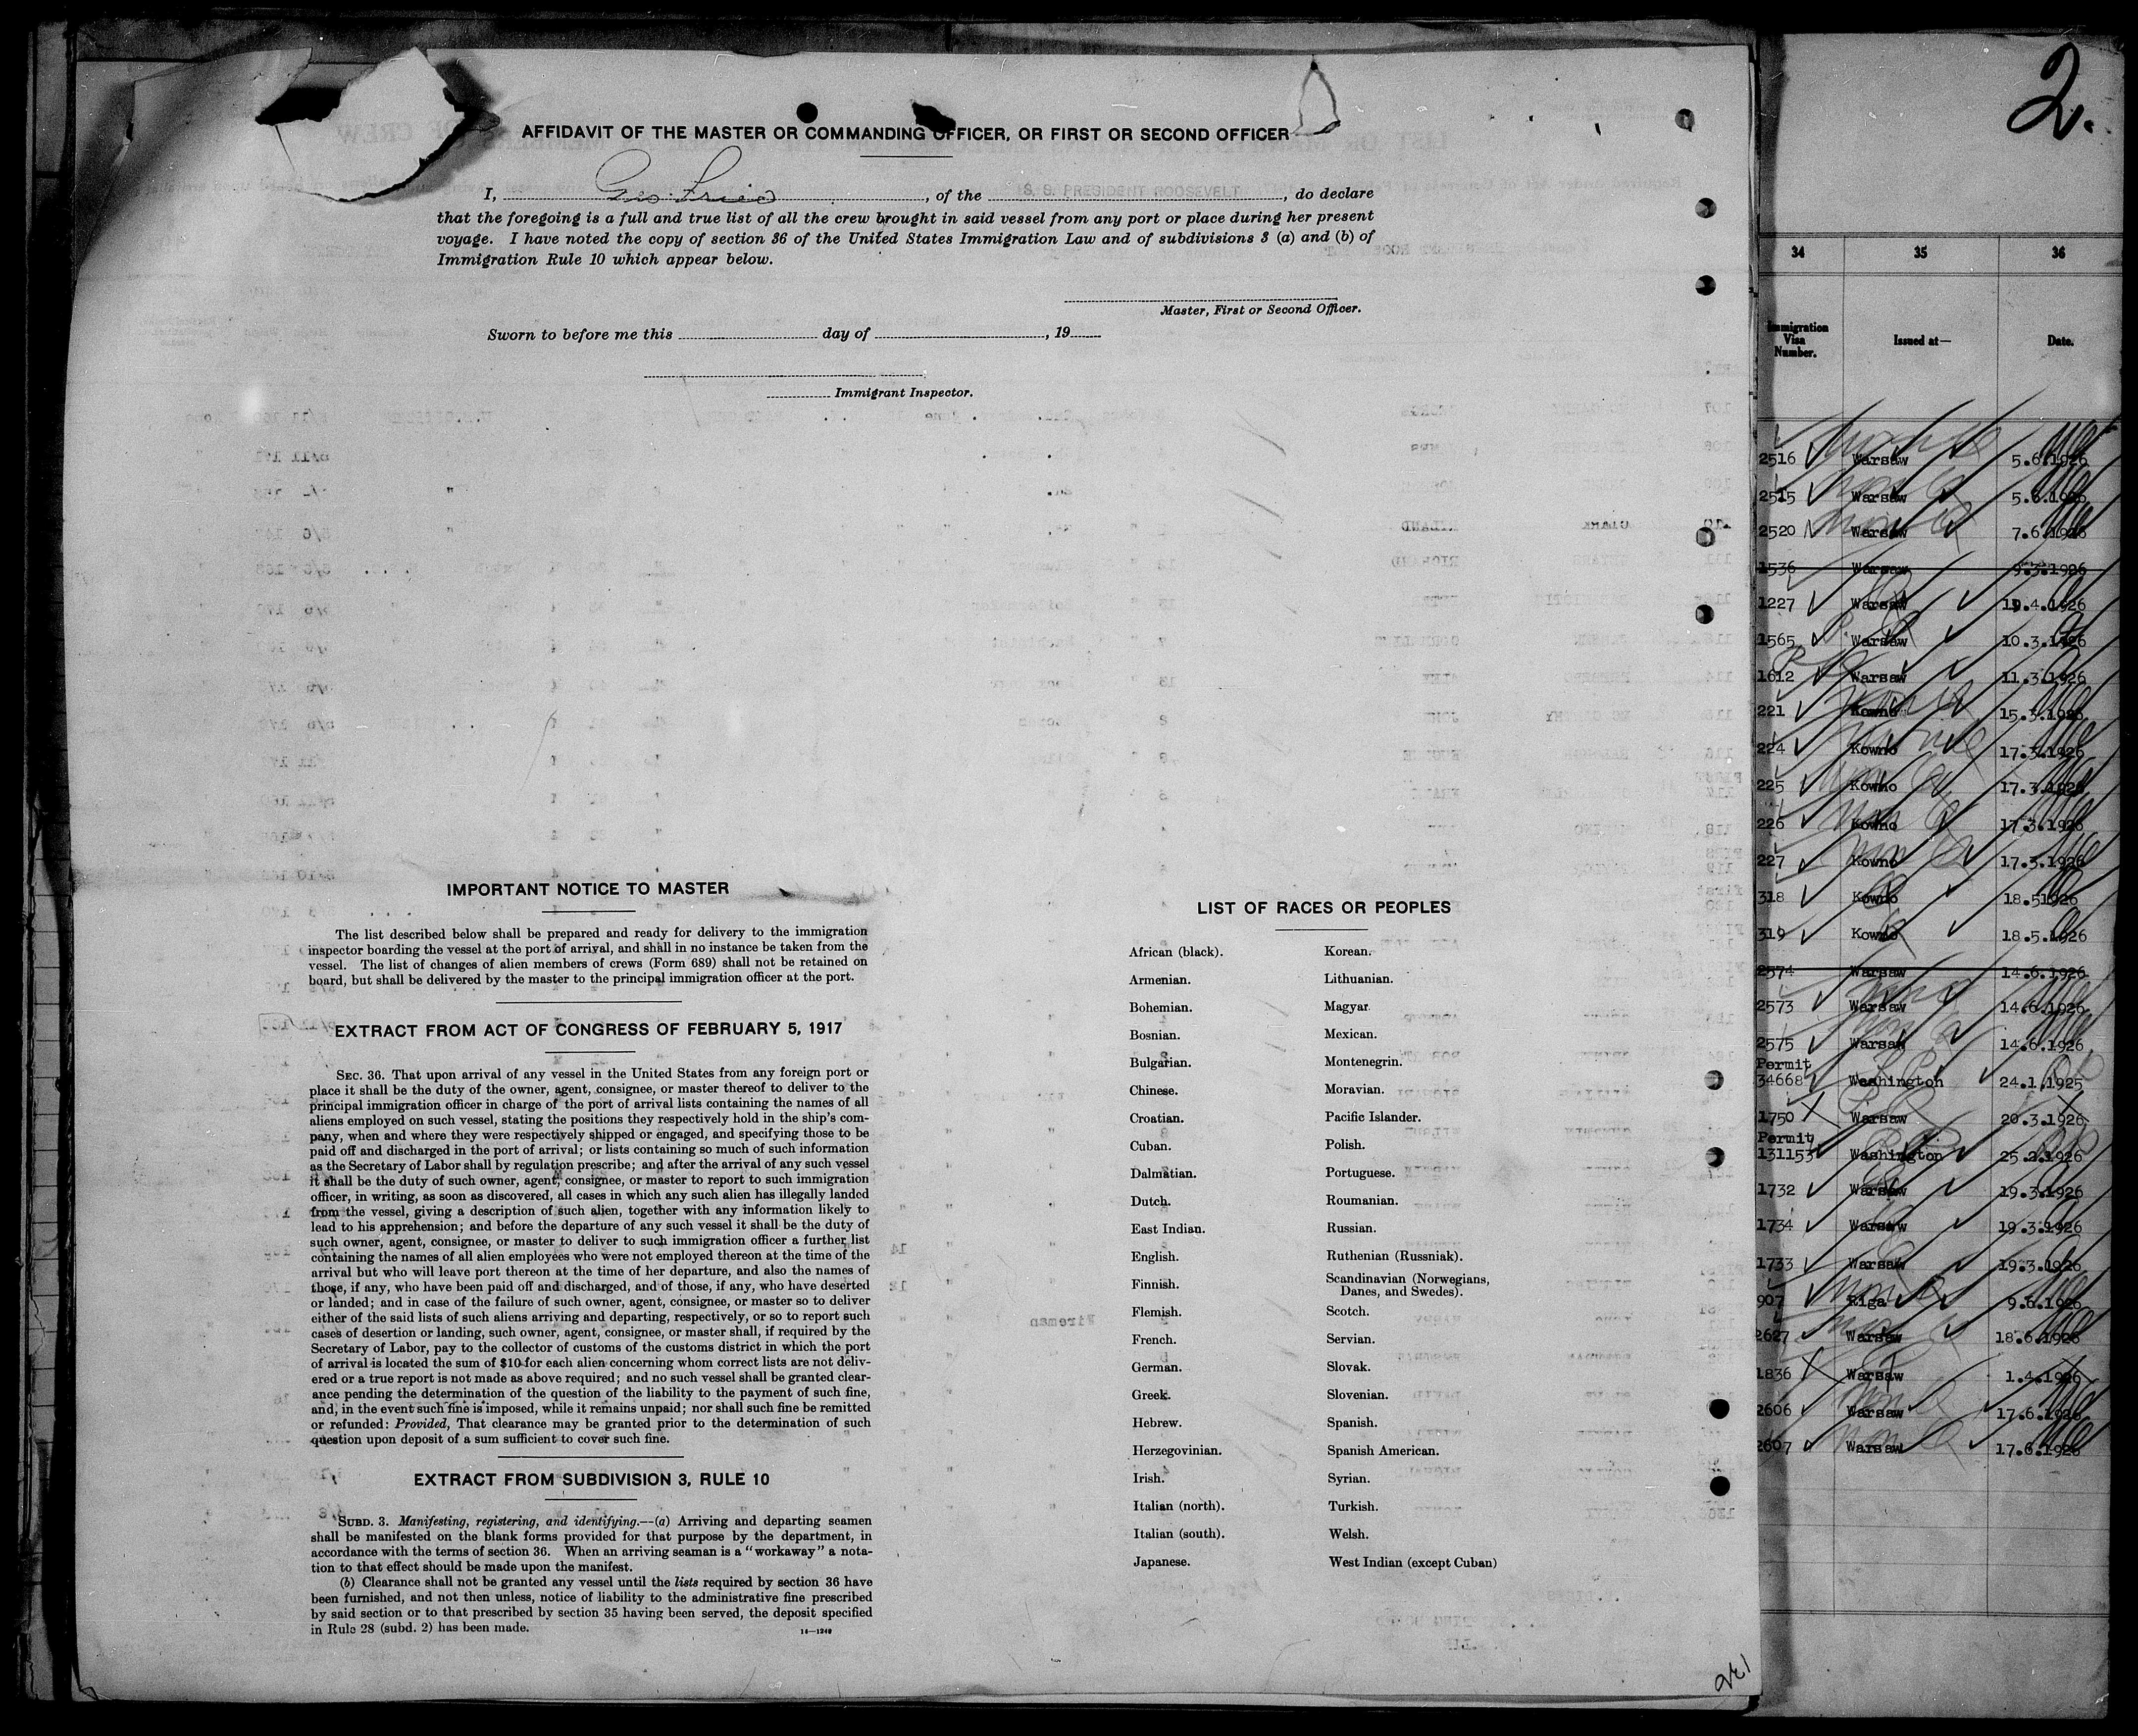 AFFIDAVIT OF THE MASTER OR COMMANDING OFFICER, OR FIRST OR SECOND OFFICER
I, Geo. Fried, of the S. S. PRESIDENT ROOSEVELT, do declare
that the foregoing is a full and true list of all the crew brought in said vessel from any port or place during her present
voyage. I have noted the copy of section 36 of the United States Immigration Law and of subdivisions 3 (a) and (b) of
Immigration Rule 10 which appear below.
Master, First or Second Officer.
Sworn to before me this day of , 19
Immigrant Inspector.
IMPORTANT NOTICE TO MASTER
The list described below shall be prepared and ready for delivery to the immigration
inspector boarding the vessel at the port of arrival, and shall in no instance be taken from the
vessel. The list of changes of alien members of crews (Form 689) shall not be retained on
board, but shall be delivered by the master to the principal immigration officer at the port.
EXTRACT FROM ACT OF CONGRESS OF FEBRUARY 5, 1917
SEC. 36. That upon arrival of any vessel in the United States from any foreign port or
place it shall be the duty of the owner, agent, consignee, or master thereof to deliver to the
principal immigration officer in charge of the port of arrival lists containing the names of all
aliens employed on such vessel, stating the positions they respectively hold in the ship's com-
pany, when and where they were respectively shipped or engaged, and specifying those to be
paid off and discharged in the port of arrival; or lists containing so much of such information
as the Secretary of Labor shall by regulation prescribe; and after the arrival of any such vessel
it shall be the duty of such owner, agent, consignee, or master to report to such immigration
officer, in writing, as soon as discovered, all cases in which any such alien has illegally landed
from the vessel, giving a description of such alien, together with any information likely to
lead to his apprehension; and before the departure of any such vessel it shall be the duty of
such owner, agent, consignee, or master to deliver to such immigration officer a further list
containing the names of all alien employees who were not employed thereon at the time of the
arrival but who will leave port thereon at the time of her departure, and also the names of
those, if any, who have been paid off and discharged, and of those, if any, who have deserted
or landed; and in case of the failure of such owner, agent, consignee, or master so to deliver
either of the said lists of such aliens arriving and departing, respectively, or so to report such
cases of desertion or landing, such owner, agent, consignee, or master shall, if required by the
Secretary of Labor, pay to the collector of customs of the customs district in which the port
of arrival is located the sum of $10 for each alien concerning whom correct lists are not deliv-
ered or a true report is not made as above required; and no such vessel shall be granted clear-
ance pending the determination of the question of the liability to the payment of such fine,
and, in the event such fine is imposed, while it remains unpaid; nor shall such fine be remitted
or refunded: Provided, That clearance may be granted prior to the determination of such
question upon deposit of a sum sufficient to cover such fine.
EXTRACT FROM SUBDIVISION 3, RULE 10
SUBD. 3. Manifesting, registering, and identifying.—(a) Arriving and departing seamen
shall be manifested on the blank forms provided for that purpose by the department, in
accordance with the terms of section 36. When an arriving seaman is a "workaway" a nota-
tion to that effect should be made upon the manifest.
(b) Clearance shall not be granted any vessel until the lists required by section 36 have
been furnished, and not then unless, notice of liability to the administrative fine prescribed
by said section or to that prescribed by section 35 having been served, the deposit specified
in Rule 28 (subd. 2) has been made.
14—1240
LIST OF RACES OR PEOPLES
African (black).
Armenian.
Bohemian.
Bosnian.
Bulgarian.
Chinese.
Croatian.
Cuban.
Dalmatian.
Dutch.
East Indian.
English.
Finnish.
Flemish.
French.
German.
Greek.
Hebrew.
Herzegovinian.
Irish.
Italian (north).
Italian (south).
Japanese.
Korean.
Lithuanian.
Magyar.
Mexican.
Montenegrin.
Moravian.
Pacific Islander.
Polish.
Portuguese.
Roumanian.
Russian.
Ruthenian (Russniak).
Scandinavian (Norwegians,
Danes, and Swedes).
Scotch.
Servian.
Slovak.
Slovenian.
Spanish.
Spanish American.
Syrian.
Turkish.
Welsh.
West Indian (except Cuban)
2.
34 35 36
Immigration
Visa
Number.
Issued at—
Date.
2516 Warsaw 5.6.1926
2515 Warsaw 5.6.1926
2520 Warsaw 7.6.1926
1536 Warsaw 9.3.1926
1227 Warsaw 19.4.1926
1565 Warsaw 10.3.1926
1612 Warsaw 11.3.1926
221 Kowno 15.3.1926
224 Kowno 17.3.1926
225 Kowno 17.3.1926
226 Kowno 17.3.1926
227 Kowno 17.3.1926
318 Kowno 18.5.1926
319 Kowno 18.5.1926
2574 Warsaw 14.6.1926
2573 Warsaw 14.6.1926
2575 Warsaw 14.6.1926
Permit
34668 Washington 24.1.1925
1750 Warsaw 20.3.1926
Permit
131153 Washington 25.2.1926
1732 Warsaw 19.3.1926
1734 Warsaw 19.3.1926
1733 Warsaw 19.3.1926
907 Riga 9.6.1926
2627 Warsaw 18.6.1926
1836 Warsaw 1.4.1926
2606 Warsaw 17.6.1926
2607 Warsaw 17.6.1926